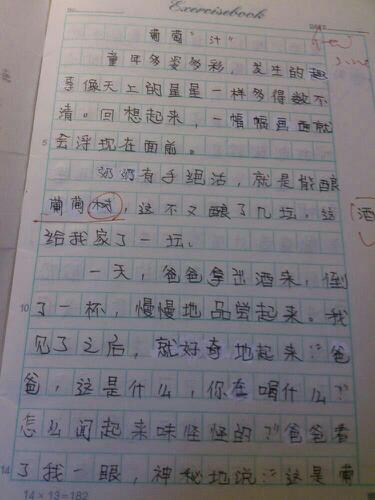 Exercisebook
葡萄"汁"
童年多姿多彩，发生的趣
事像天上的星星一样多得数不
清。回想起来，一幅幅画面就
5 会浮现在面前。
奶奶有手绝活，就是能酿
葡萄，这不又酿了几坛，这 酒
给我家了一坛。
一天，爸爸拿出酒来，倒
10 了一杯，慢慢地品尝起来。我
见了之后，就好奇地起来："爸
爸，这是什么，你在喝什么？
怎么闻起来味怪怪的？"爸爸看
14 了我一眼，神秘地说："这是葡
14×13=182